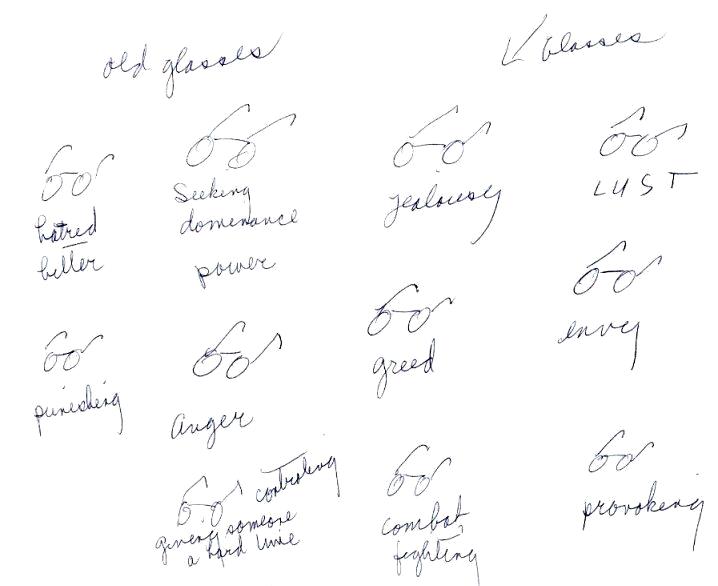 old glasses
glasses
hatred
better
Seeking
dominance
power
jealousy
LUST
punishing
anger
greed
envy
controling
giving someone
a hard time
combat
fighting
provoking